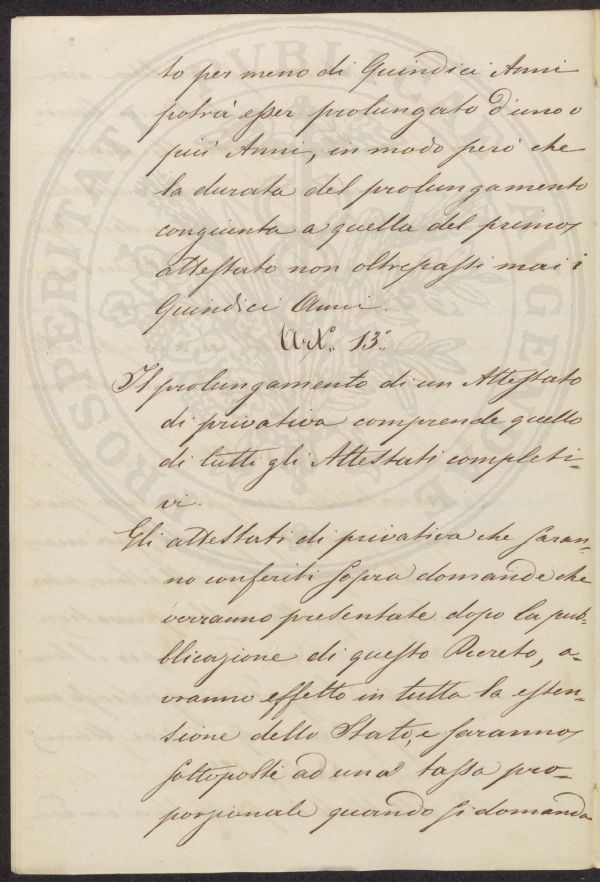 to per meno di Quindici Anni
potrà esser prolungato d'uno o
più Anni, in modo però che
la durata del prolungamento
congiunta a quella del primo
attestato non oltrepassi mai i
Quindici Anni.
Art.º 13.º
Il prolungamento di un Attestato
di privativa comprende quello
di tutti gli Attestati completi-
vi.
Gli attestati di privativa che saran-
no conferiti sopra domande che
verranno presentate dopo la pub-
blicazione di questo Decreto, a-
vranno effetto in tutta la esten-
sione dello Stato, e saranno
sottoposti ad una tassa pro-
porzionale quando si domanda
PROSPERITATI PVBLICAE AVGENDAE